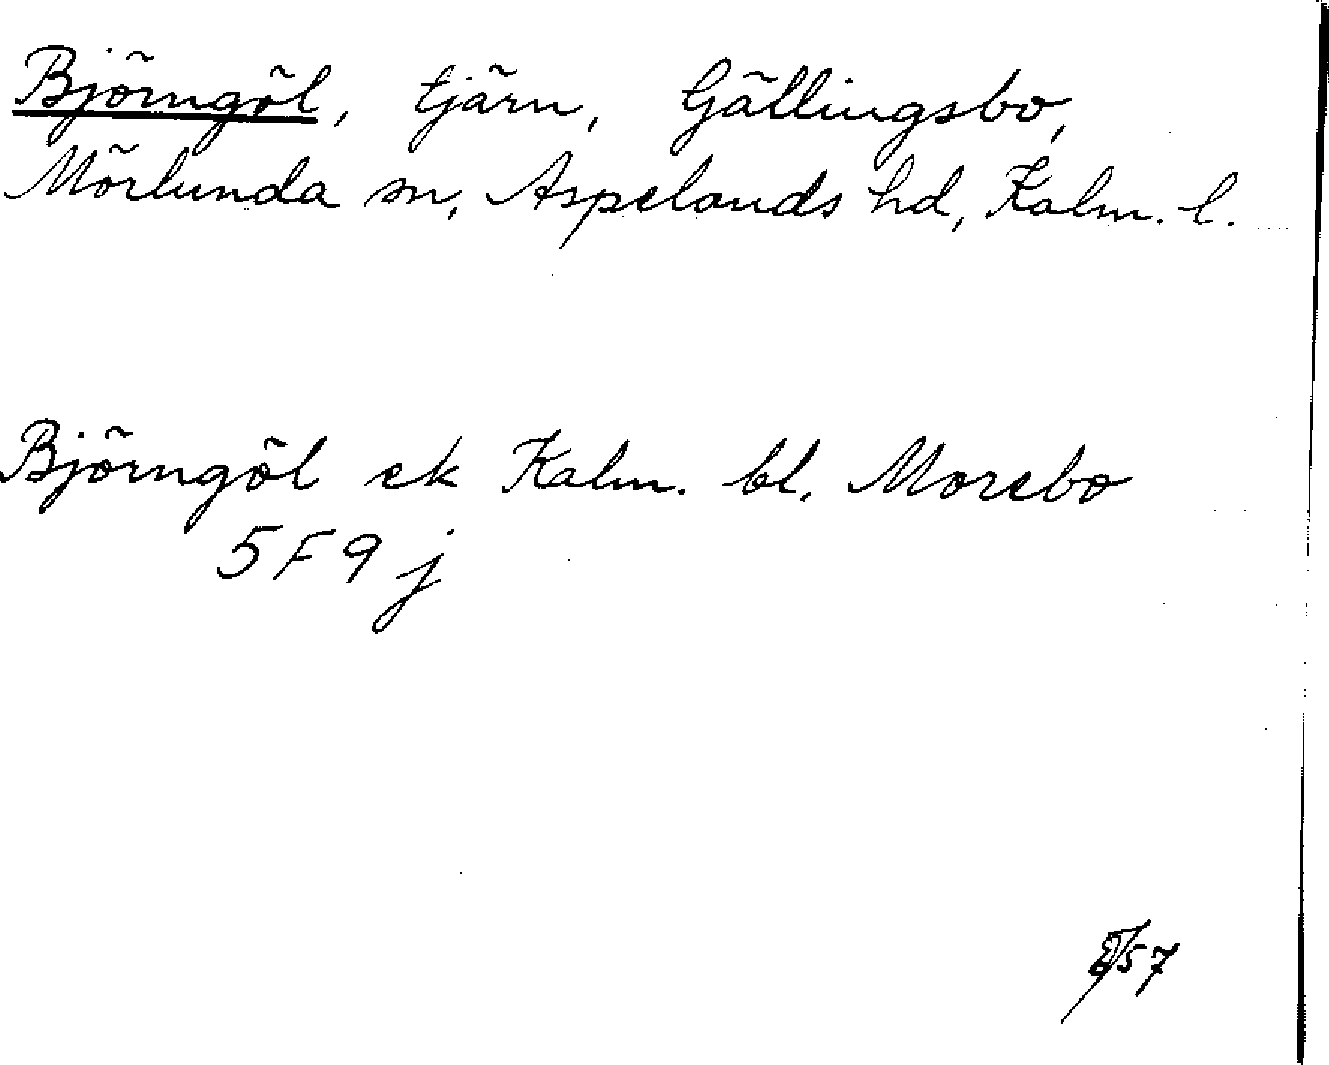 Björngöl, tjärn, Gällingsbo,
Mörlunda sn, Aspelands hd, Kalm. l.
Björngöl ek Kalm. bl. Morebo
5F9j